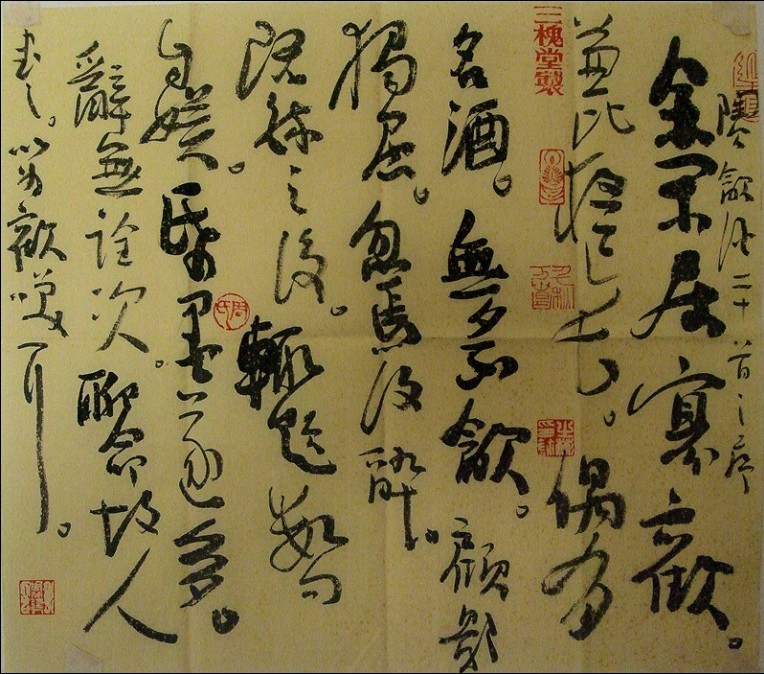 飲酒二十首之序
余閑居寡歡。
兼比夜已長。偶有
名酒。無夕不飲。顧影
獨盡。忽焉復醉。
既醉之後。輒題數句
自娛。紙墨遂多。
辭無詮次。聊命故人
書之。以為歡笑爾。
三槐堂製